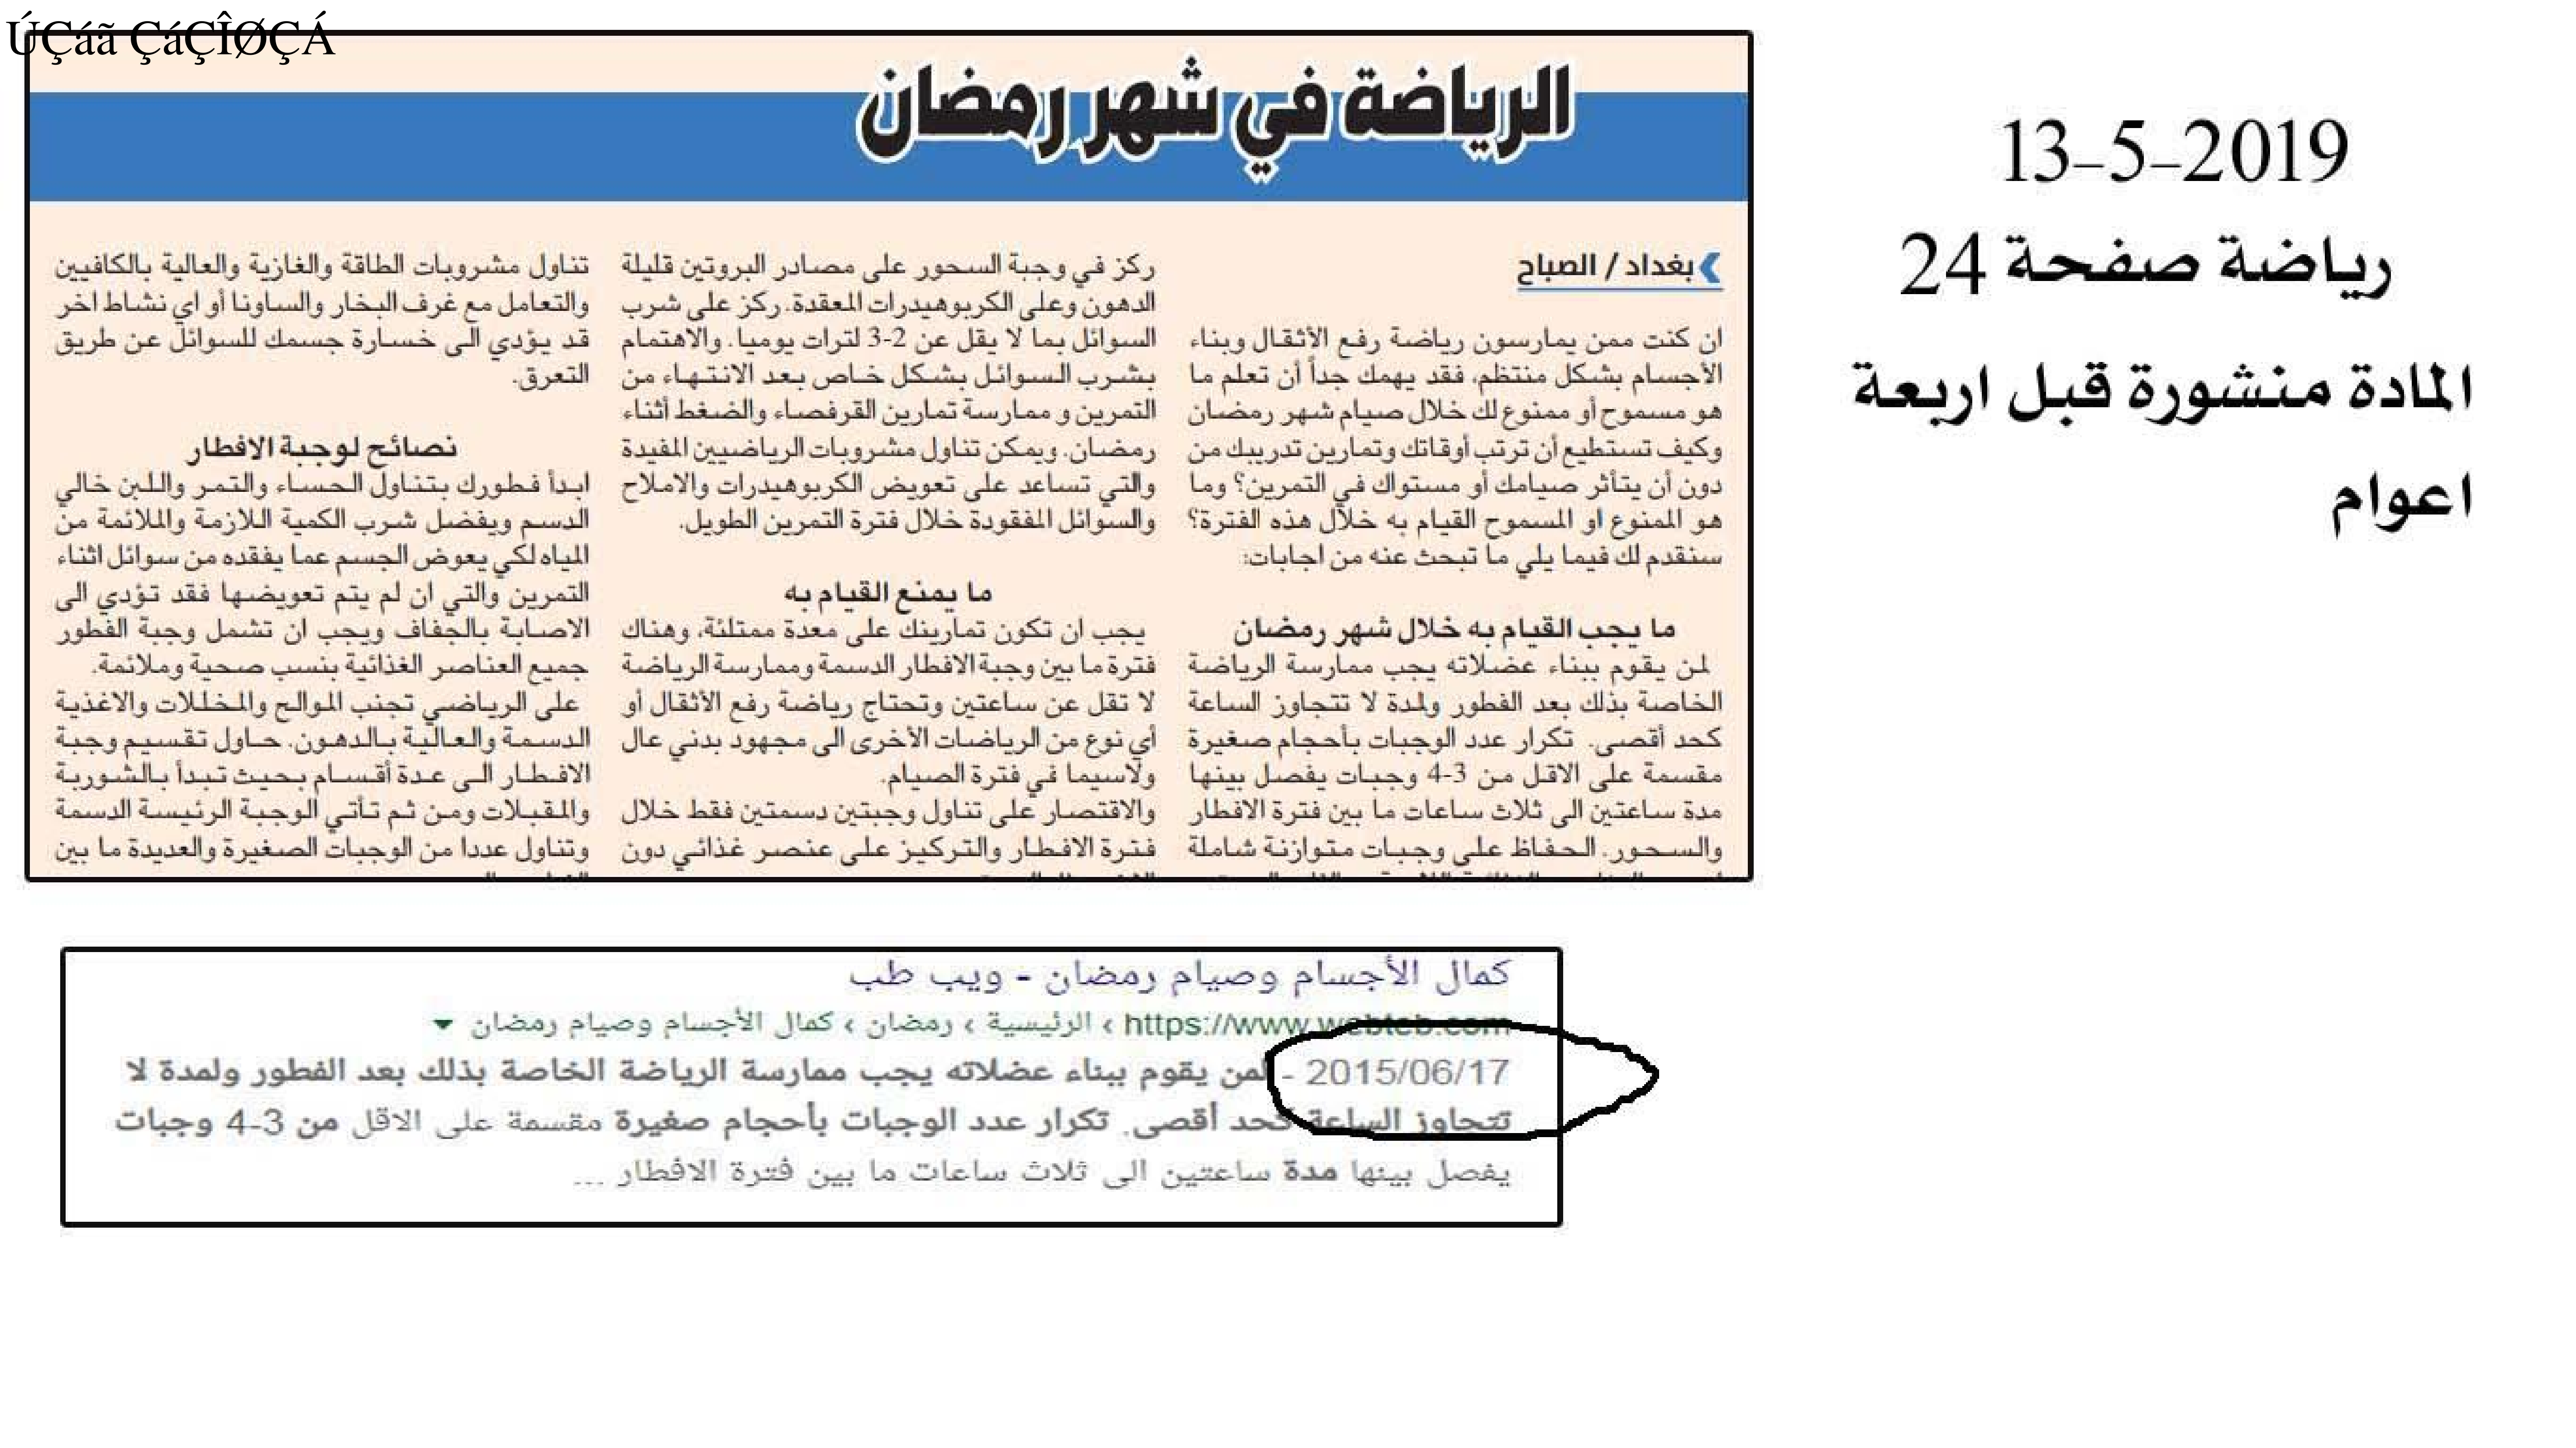 ÚÇáã ÇáÇÎØÇÁ
الرياضة في شهر رمضان
بغداد / الصباح
ان كنت ممن يمارسون رياضة رفع الأثقال وبناء
الأجسام بشكل منتظم، فقد يهمك جداً أن تعلم ما
هو مسموح أو ممنوع لك خلال صيام شهر رمضان
وكيف تستطيع أن ترتب أوقاتك وتمارين تدريبك من
دون أن يتأثر صيامك أو مستواك في التمرين؟ وما
هو الممنوع او المسموح القيام به خلال هذه الفترة؟
سنقدم لك فيما يلي ما تبحث عنه من اجابات:
ما يجب القيام به خلال شهر رمضان
لمن يقوم ببناء عضلاته يجب ممارسة الرياضة
الخاصة بذلك بعد الفطور ولمدة لا تتجاوز الساعة
كحد أقصى. تكرار عدد الوجبات بأحجام صغيرة
مقسمة على الاقل من 3-4 وجبات يفصل بينها
مدة ساعتين الى ثلاث ساعات ما بين فترة الافطار
والسحور. الحفاظ على وجبات متوازنة شاملة
ركز في وجبة السحور على مصادر البروتين قليلة
الدهون وعلى الكربوهيدرات المعقدة. ركز على شرب
السوائل بما لا يقل عن 2-3 لترات يوميا. والاهتمام
بشرب السوائل بشكل خاص بعد الانتهاء من
التمرين و ممارسة تمارين القرفصاء والضغط أثناء
رمضان. ويمكن تناول مشروبات الرياضيين المفيدة
والتي تساعد على تعويض الكربوهيدرات والاملاح
والسوائل المفقودة خلال فترة التمرين الطويل.
ما يمنع القيام به
يجب ان تكون تمارينك على معدة ممتلئة، وهناك
فترة ما بين وجبة الافطار الدسمة وممارسة الرياضة
لا تقل عن ساعتين وتحتاج رياضة رفع الأثقال أو
أي نوع من الرياضات الأخرى الى مجهود بدني عال
ولاسيما في فترة الصيام.
والاقتصار على تناول وجبتين دسمتين فقط خلال
فترة الافطار والتركيز على عنصر غذائي دون
تناول مشروبات الطاقة والغازية والعالية بالكافيين
والتعامل مع غرف البخار والساونا أو اي نشاط اخر
قد يؤدي الى خسارة جسمك للسوائل عن طريق
التعرق.
نصائح لوجبة الافطار
ابدأ فطورك بتناول الحساء والتمر واللبن خالي
الدسم ويفضل شرب الكمية اللازمة والملائمة من
المياه لكي يعوض الجسم عما يفقده من سوائل اثناء
التمرين والتي ان لم يتم تعويضها فقد تؤدي الى
الاصابة بالجفاف ويجب ان تشمل وجبة الفطور
جميع العناصر الغذائية بنسب صحية وملائمة.
على الرياضي تجنب الموالح والمخللات والاغذية
الدسمة والعالية بالدهون. حاول تقسيم وجبة
الافطار الى عدة أقسام بحيث تبدأ بالشوربة
والمقبلات ومن ثم تأتي الوجبة الرئيسة الدسمة
وتناول عددا من الوجبات الصغيرة والعديدة ما بين
13-5-2019
رياضة صفحة 24
المادة منشورة قبل اربعة
اعوام
كمال الأجسام وصيام رمضان - ويب طب
https://www.webteb.com › الرئيسية › رمضان › كمال الأجسام وصيام رمضان
2015/06/17 - لمن يقوم ببناء عضلاته يجب ممارسة الرياضة الخاصة بذلك بعد الفطور ولمدة لا
تتجاوز الساعة كحد أقصى. تكرار عدد الوجبات بأحجام صغيرة مقسمة على الاقل من 3-4 وجبات
يفصل بينها مدة ساعتين الى ثلاث ساعات ما بين فترة الافطار ...